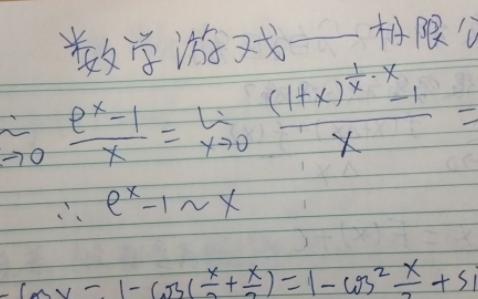 数学游戏——极限
lim x→0 (e^x-1)/x = lim x→0 ((1+x)^(1/x·x)-1)/x =
∴ e^x-1~x
-cosx = 1-cos(x/2+x/2)=1-cos²x/2+si